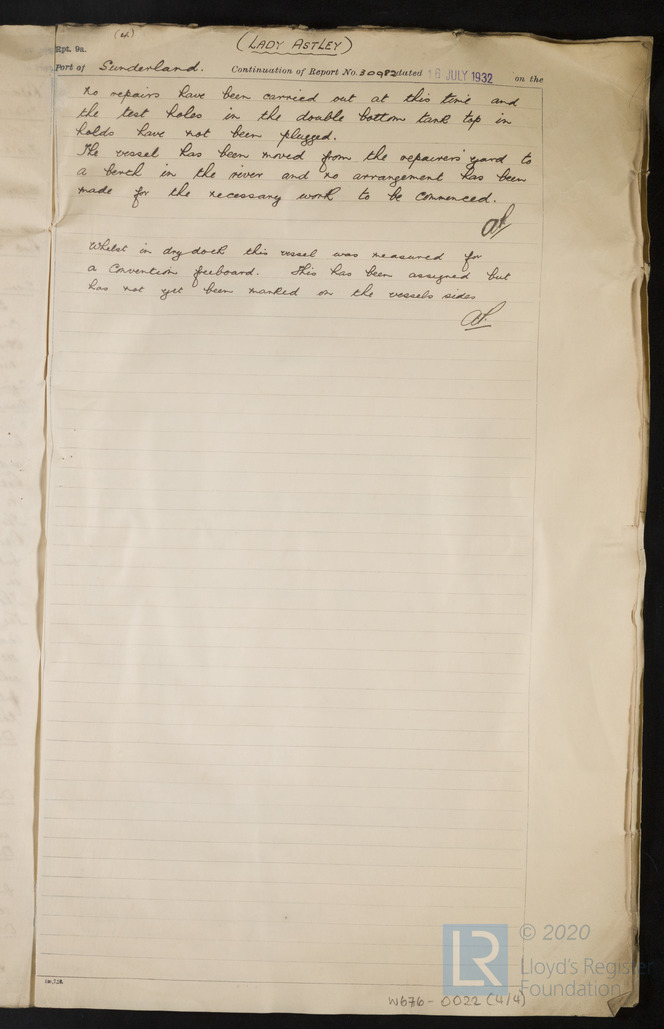 (LADY ASTLEY)
Rpt. 9a.
Port of Sunderland. Continuation of Report No. 30982 dated 16 JULY 1932 on the
No repairs have been carried out at this time and
the test holes in the double bottom tank top in
holds have not been plugged.
The vessel has been moved from the repairers' yard to
a berth in the river and no arrangement has been
made for the necessary work to be commenced.
Whilst in dry dock this vessel was measured for
a Convention freeboard. This has been assigned but
has not yet been marked on the vessels sides
© 2020
LR
Lloyd's Register
Foundation
W676-0022 (4/4)